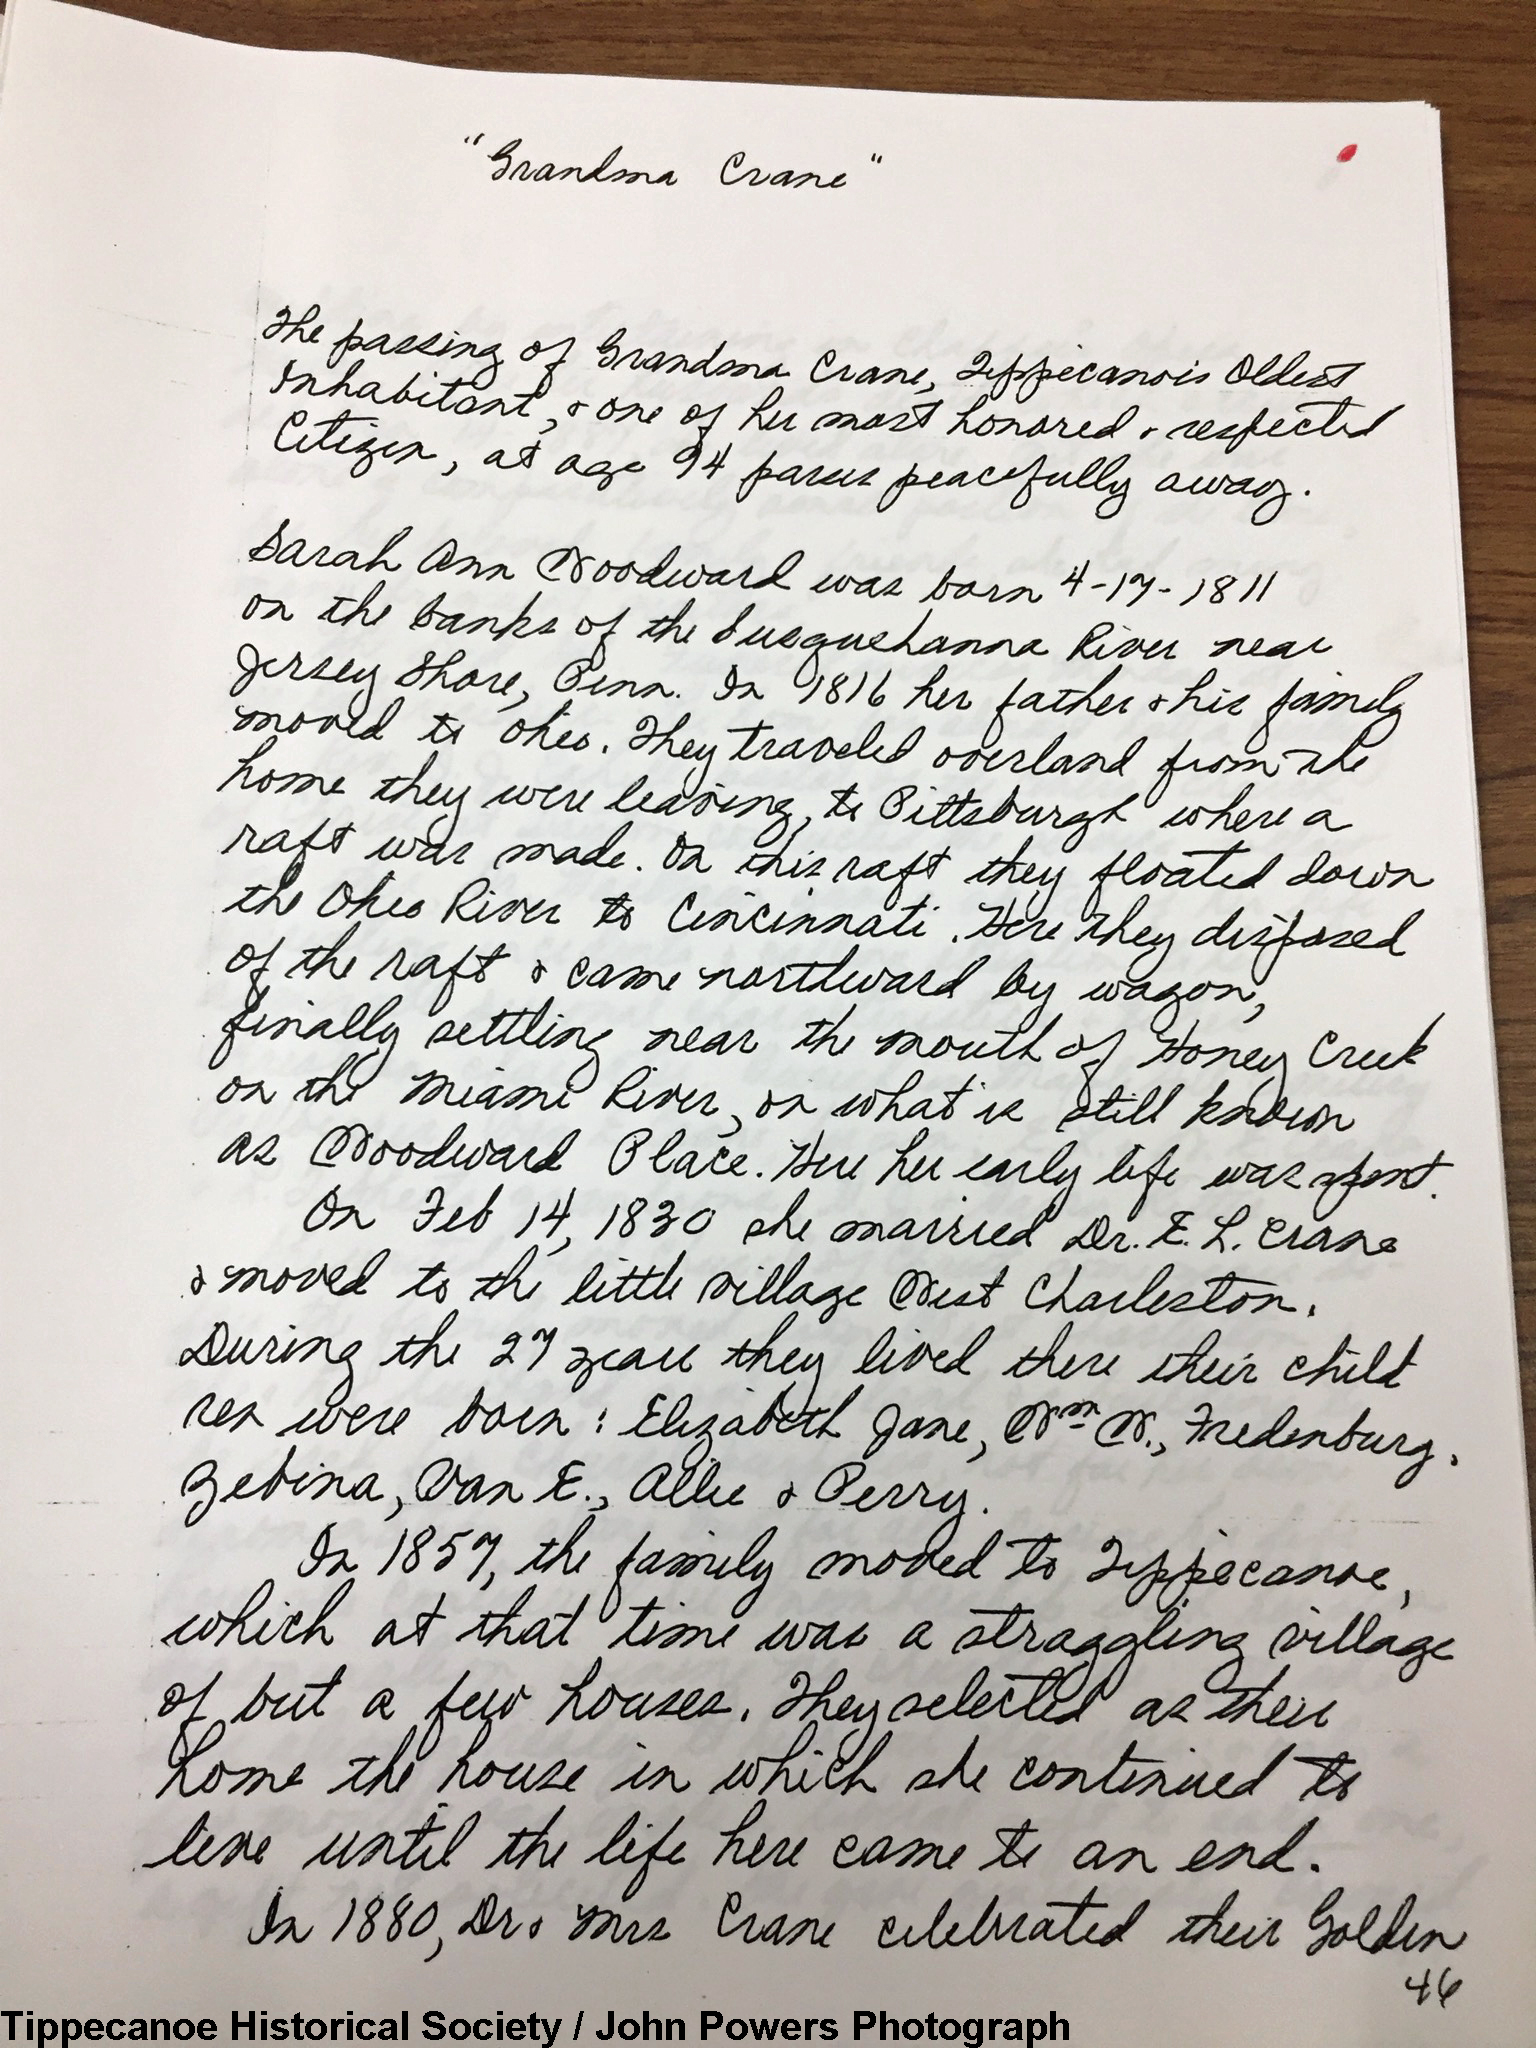 "Grandma Crane"
The passing of Grandma Crane, Tippecanois Oldest
Inhabitant, & one of her most honored & respected
Citizen, at age 94 passes peacefully away.
Sarah Ann Woodward was born 4-17-1811
on the banks of the Susquehanna River near
Jersey Shore, Penn. In 1816 her father & his family
moved to Ohio. They traveled overland from the
home they were leaving, to Pittsburgh where a
raft was made. On this raft they floated down
the Ohio River to Cincinnati. Here they disposed
of the raft & came northward by wagon,
finally settling near the mouth of Honey Creek
on the Miami River, on what is still known
as Woodward Place. Here her early life was spent.
On Feb 14, 1830 she married Dr. E. L. Crane
& moved to the little village West Charleston.
During the 27 years they lived there their child
ren were born: Elizabeth Jane, Wm W., Fredenburg,
Zebina, Van E., Allie & Perry.
In 1857, the family moved to Tippecanoe,
which at that time was a straggling village
of but a few houses. They selected as their
home the house in which she continued to
live until the life here came to an end.
In 1880, Dr & Mrs Crane celebrated their Golden
46
Tippecanoe Historical Society / John Powers Photograph